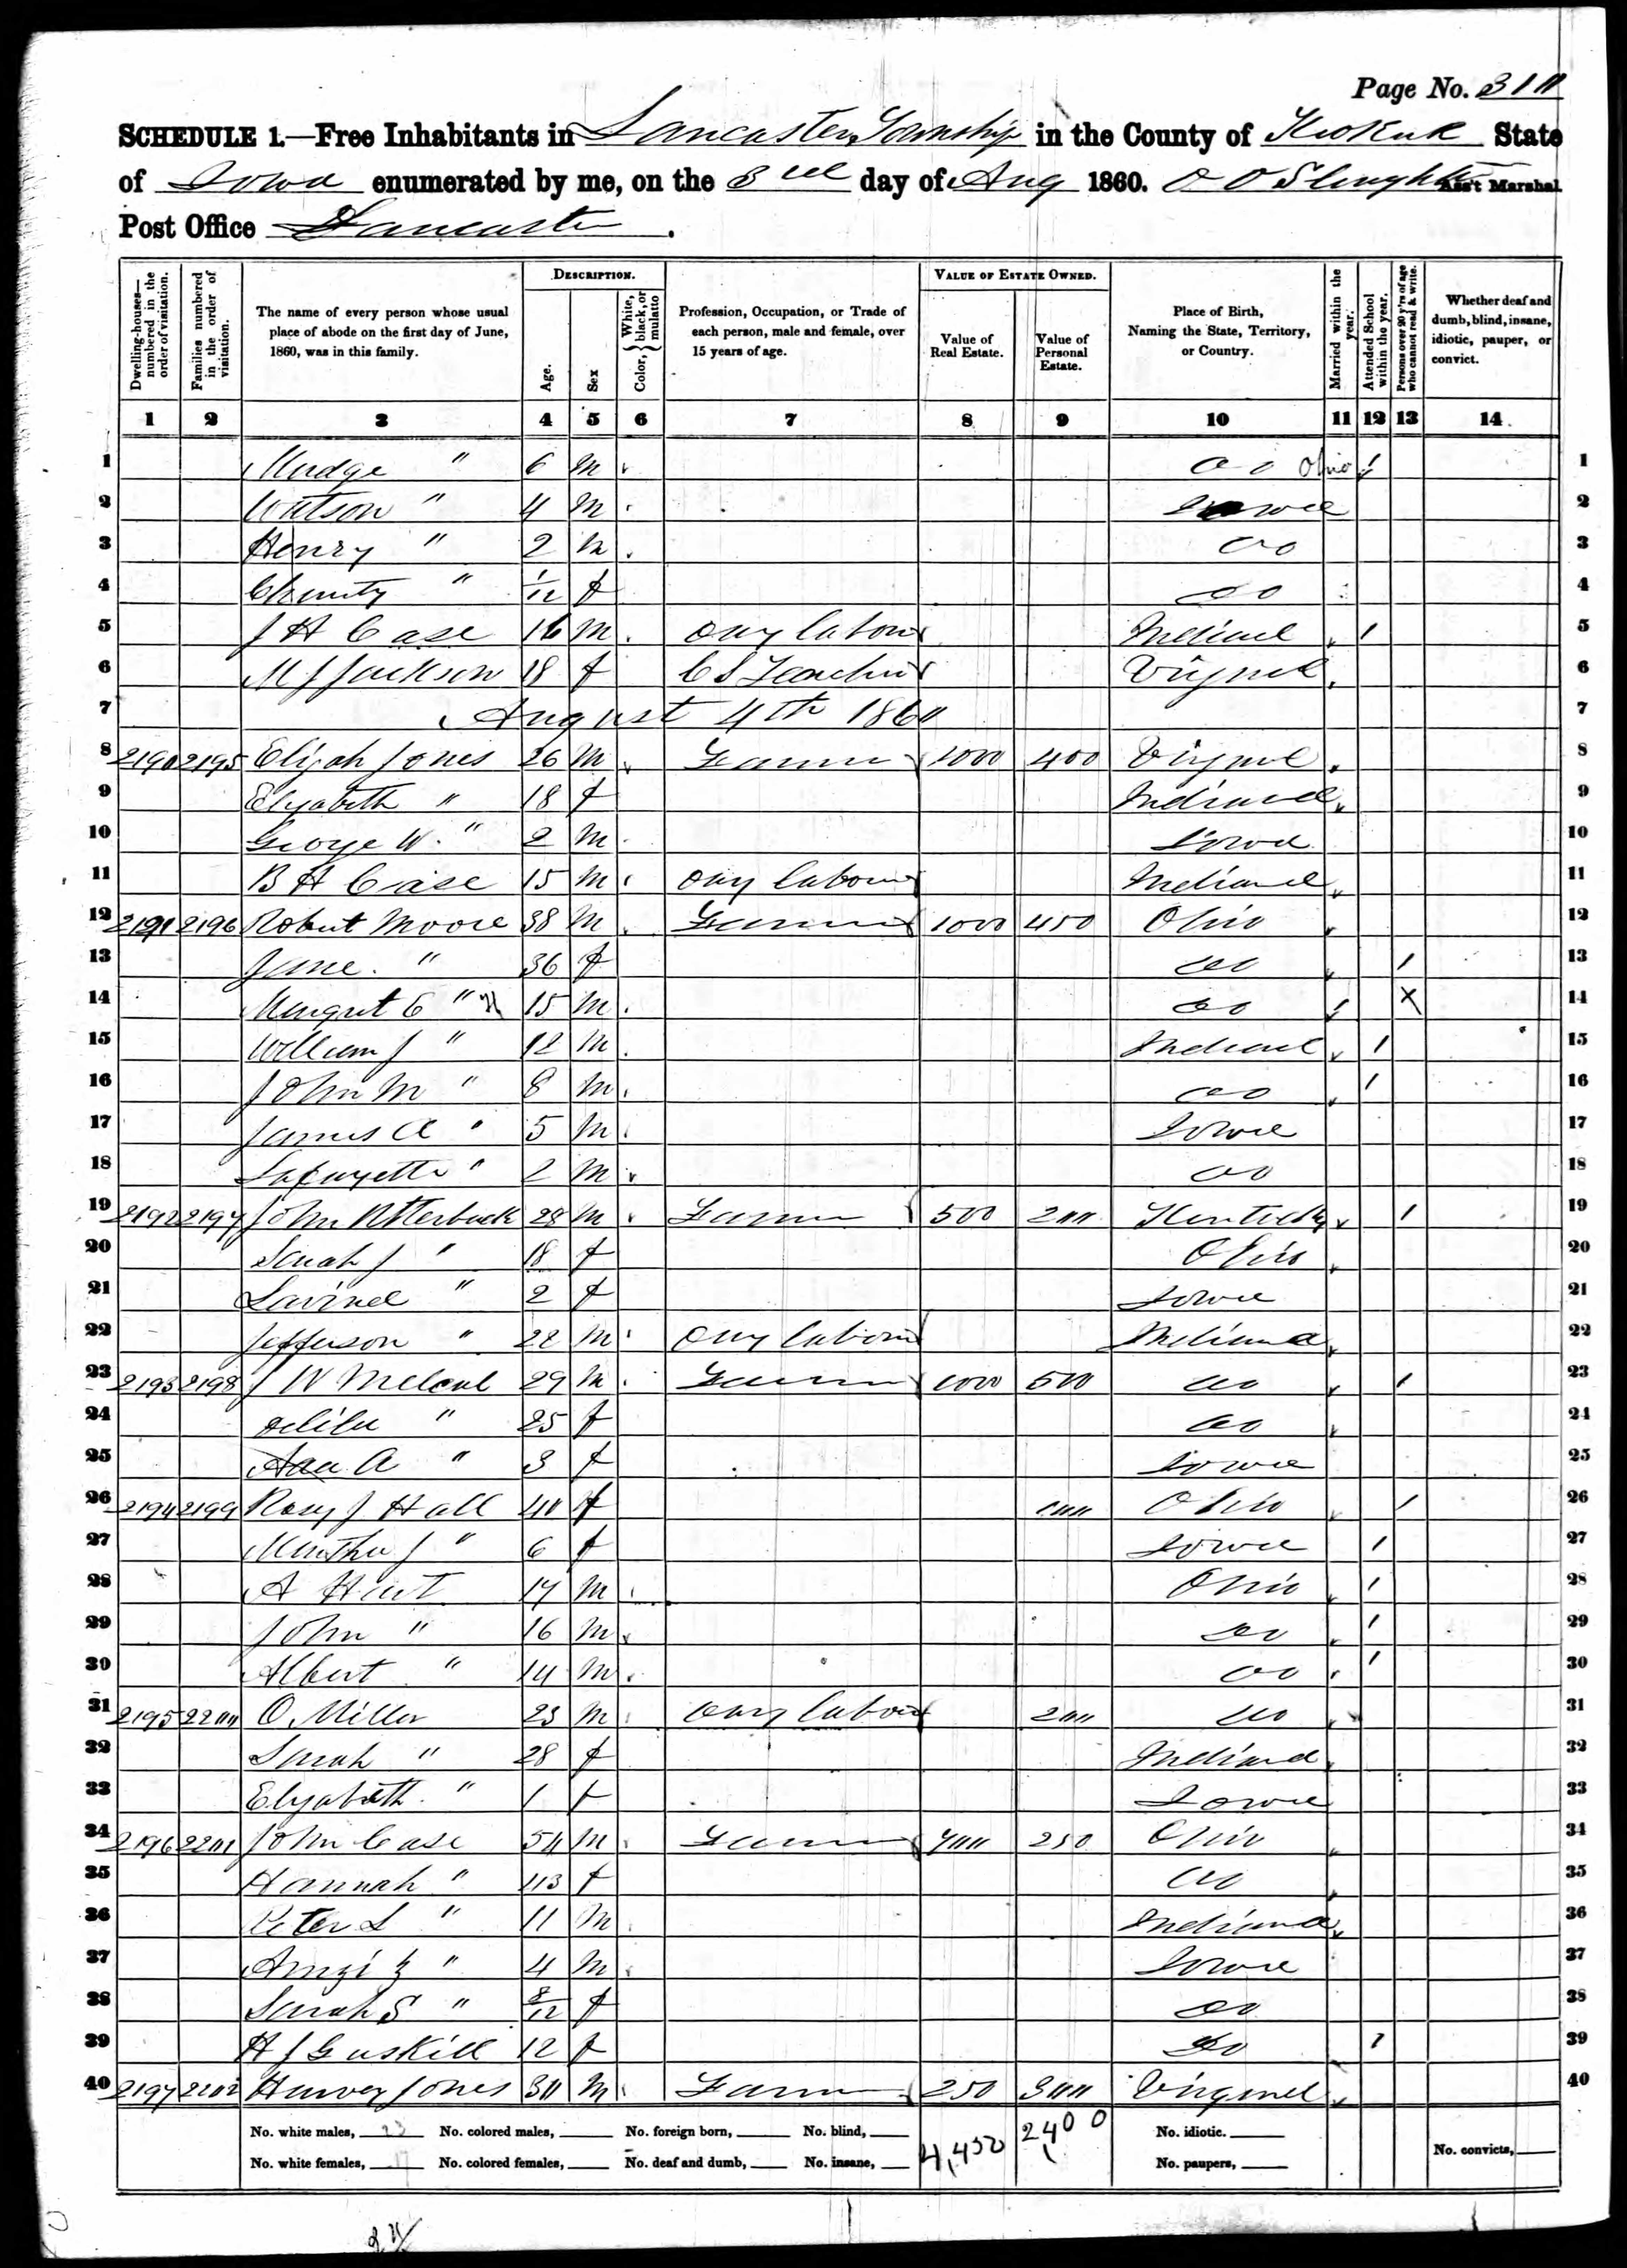 Page No. 310
SCHEDULE 1.—Free Inhabitants in Lancaster Township in the County of Keokuk State
of Iowa enumerated by me, on the 3rd day of Aug 1860. Ass't Marshal
Post Office Lancaster.
DESCRIPTION. VALUE OF ESTATE OWNED.
Dwelling-houses—numbered in the order of visitation. Families numbered in the order of visitation. The name of every person whose usual place of abode on the first day of June, 1860, was in this family. Age. Sex Color, White, black, or mulatto Profession, Occupation, or Trade of each person, male and female, over 15 years of age. Value of Real Estate. Value of Personal Estate. Place of Birth, Naming the State, Territory, or Country. Married within the year. Attended School within the year. Persons over 20 y'rs of age who cannot read & write. Whether deaf and dumb, blind, insane, idiotic, pauper, or convict.
1 2 3 4 5 6 7 8 9 10 11 12 13 14
1 Mudge " 6 m do Ohio / 1
2 Watson " 4 m Iowa 2
3 Henry " 2 m do 3
4 " 1/12 f do 4
5 J H Case 16 m Day labour Indiana / 5
6 M J Jackson 18 f C S Teacher 6
7 August 4th 1860 7
8 2190 2195 Elijah Jones 26 m Farmer 1000 400 8
9 Elyabeth " 18 f Indiana 9
10 George W. " 2 m Iowa 10
11 B H Case 15 m Day labour Indiana 11
12 2191 2196 Robert Moore 38 m Farmer 1000 450 Ohio 12
13 Jane. " 36 f do / 13
14 " 15 m do X 14
15 William J " 12 m Indiana / 15
16 John M " 8 m do / 16
17 James A " 5 m Iowa 17
18 Lafayette " 2 m do 18
19 2192 2197 John Utterback 28 m Farmer 500 200 / 19
20 Sarah J " 18 f Ohio 20
21 " 2 f Iowa 21
22 Jefferson " 22 m Day labour Indiana 22
23 2193 2198 J W 29 m Farmer 1000 500 do / 23
24 " 25 f do 24
25 A " 3 f Iowa 25
26 2194 2199 Rosy J Hall 40 f 100 Ohio / 26
27 Martha J " 6 f Iowa / 27
28 A 17 m Ohio / 28
29 John " 16 m do / 29
30 Albert " 14 m do / 30
31 2195 2200 O. Miller 23 m Day labour 200 do 31
32 Sarah " 28 f Indiana 32
33 Elyabeth. " 1 f Iowa 33
34 2196 2201 John Case 50 m Farmer 700 250 Ohio 34
35 Hannah " 43 f do 35
36 Peter L " 11 m Indiana 36
37 Amzi Z " 4 m Iowa 37
38 Sarah S " 8/12 f do 38
39 H J Gaskill 12 f do / 39
40 2197 2202 Harvey Jones 30 m Farmer 250 300 40
No. white males, 23 No. colored males, No. foreign born, No. blind, 4,450 2400 No. idiotic.
No. white females, 17 No. colored females, No. deaf and dumb, No. insane, No. paupers, No. convicts,